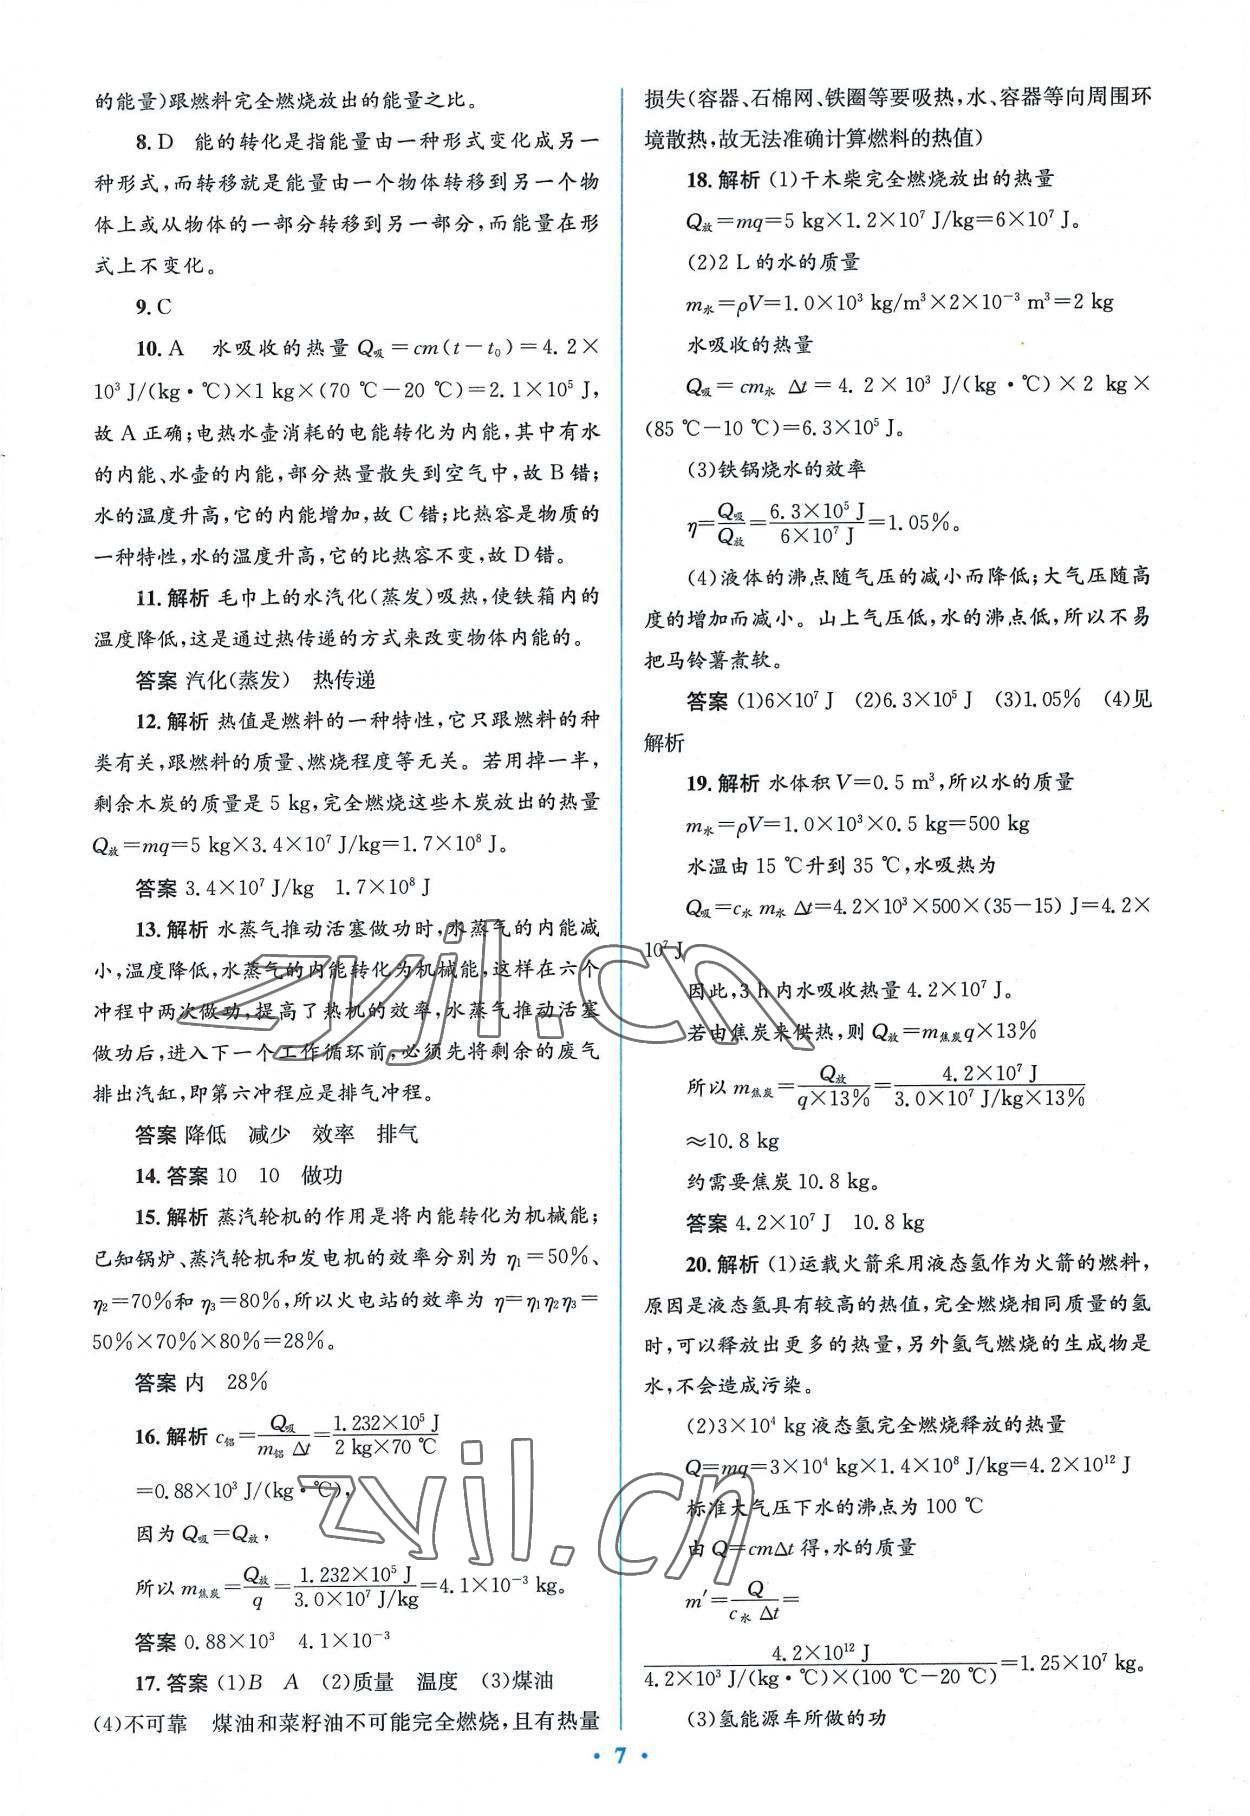 的能量)跟燃料完全燃烧放出的能量之比。
8. D 能的转化是指能量由一种形式变化成另一
种形式,而转移就是能量由一个物体转移到另一个物
体上或从物体的一部分转移到另一部分,而能量在形
式上不变化。
9. C
10. A 水吸收的热量 Q吸=cm(t-t₀)=4.2×
10³ J/(kg·℃)×1 kg×(70 ℃-20 ℃)=2.1×10⁵ J,
故 A 正确;电热水壶消耗的电能转化为内能,其中有水
的内能、水壶的内能,部分热量散失到空气中,故 B 错;
水的温度升高,它的内能增加,故 C 错;比热容是物质的
一种特性,水的温度升高,它的比热容不变,故 D 错。
11. 解析 毛巾上的水汽化(蒸发)吸热,使铁箱内的
温度降低,这是通过热传递的方式来改变物体内能的。
答案 汽化(蒸发) 热传递
12. 解析 热值是燃料的一种特性,它只跟燃料的种
类有关,跟燃料的质量、燃烧程度等无关。若用掉一半,
剩余木炭的质量是 5 kg,完全燃烧这些木炭放出的热量
Q放=mq=5 kg×3.4×10⁷ J/kg=1.7×10⁸ J。
答案 3.4×10⁷ J/kg 1.7×10⁸ J
13. 解析 水蒸气推动活塞做功时,水蒸气的内能减
小,温度降低,水蒸气的内能转化为机械能,这样在六个
冲程中两次做功,提高了热机的效率,水蒸气推动活塞
做功后,进入下一个工作循环前,必须先将剩余的废气
排出汽缸,即第六冲程应是排气冲程。
答案 降低 减少 效率 排气
14. 答案 10 10 做功
15. 解析 蒸汽轮机的作用是将内能转化为机械能;
已知锅炉、蒸汽轮机和发电机的效率分别为 η₁=50%、
η₂=70%和 η₃=80%,所以火电站的效率为 η=η₁η₂η₃=
50%×70%×80%=28%。
答案 内 28%
16. 解析 c铝=Q吸/(m铝 Δt)=1.232×10⁵ J/(2 kg×70 ℃)
=0.88×10³ J/(kg·℃),
因为 Q吸=Q放,
所以 m焦炭=Q放/q=1.232×10⁵ J/(3.0×10⁷ J/kg)=4.1×10⁻³ kg。
答案 0.88×10³ 4.1×10⁻³
17. 答案 (1)B A (2)质量 温度 (3)煤油
(4)不可靠 煤油和菜籽油不可能完全燃烧,且有热量
损失(容器、石棉网、铁圈等要吸热,水、容器等向周围环
境散热,故无法准确计算燃料的热值)
18. 解析 (1)干木柴完全燃烧放出的热量
Q放=mq=5 kg×1.2×10⁷ J/kg=6×10⁷ J。
(2)2 L 的水的质量
m水=ρV=1.0×10³ kg/m³×2×10⁻³ m³=2 kg
水吸收的热量
Q吸=cm水 Δt=4.2×10³ J/(kg·℃)×2 kg×
(85 ℃-10 ℃)=6.3×10⁵ J。
(3)铁锅烧水的效率
η=Q吸/Q放=6.3×10⁵ J/(6×10⁷ J)=1.05%。
(4)液体的沸点随气压的减小而降低;大气压随高
度的增加而减小。山上气压低,水的沸点低,所以不易
把马铃薯煮软。
答案 (1)6×10⁷ J (2)6.3×10⁵ J (3)1.05% (4)见
解析
19. 解析 水体积 V=0.5 m³,所以水的质量
m水=ρV=1.0×10³×0.5 kg=500 kg
水温由 15 ℃升到 35 ℃,水吸热为
Q吸=c水 m水 Δt=4.2×10³×500×(35-15) J=4.2×
10⁷ J
因此,3 h 内水吸收热量 4.2×10⁷ J。
若由焦炭来供热,则 Q放=m焦炭q×13%
所以 m焦炭=Q放/(q×13%)=4.2×10⁷ J/(3.0×10⁷ J/kg×13%)
≈10.8 kg
约需要焦炭 10.8 kg。
答案 4.2×10⁷ J 10.8 kg
20. 解析 (1)运载火箭采用液态氢作为火箭的燃料,
原因是液态氢具有较高的热值,完全燃烧相同质量的氢
时,可以释放出更多的热量,另外氢气燃烧的生成物是
水,不会造成污染。
(2)3×10⁴ kg 液态氢完全燃烧释放的热量
Q=mq=3×10⁴ kg×1.4×10⁸ J/kg=4.2×10¹² J
标准大气压下水的沸点为 100 ℃
由 Q=cmΔt 得,水的质量
m′=Q/(c水 Δt)=
4.2×10¹² J/(4.2×10³ J/(kg·℃)×(100 ℃-20 ℃))=1.25×10⁷ kg。
(3)氢能源车所做的功
· 7 ·
zyjl.cn
zyjl.cn